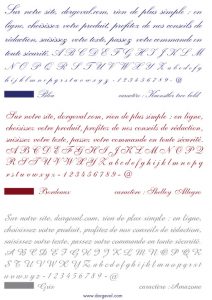 Sur notre site, dorgeval.com, rien de plus simple : en ligne,
choisissez votre produit, profitez de nos conseils de
rédaction, saisissez votre texte, passez votre commande en
toute sécurité. A B C D E F G H I J K L M
N O P Q R S T U V W X Y Z a b c d e f g h i
j k l m n o p q r s t u v w x y z - 1 2 3 4 5 6 7 8 9 - @
Bleu caractère : Kuenstler two bold
Sur notre site, dorgeval.com, rien de plus simple : en ligne,
choisissez votre produit, profitez de nos conseils de rédaction,
saisissez votre texte, passez votre commande en toute sécurité.
A B C D E F G H I J K L M N O P Q R
S T U V W X Y Z a b c d e f g h i j k l m n o
p q r s t u v w x y z - 1 2 3 4 5 6 7 8 9 - @
Bordeaux caractère : Shelley Allegro
Sur notre site, dorgeval.com, rien de plus simple : en ligne,
choisissez votre produit, profitez de nos conseils de
rédaction, saisissez votre texte, passez votre
commande en toute sécurité. A B C D E F G H I J K L M
N O P Q R S T U V W X Y Z a b c d e f g h i j k l m n o p q
r s t u v w x y z - 1 2 3 4 5 6 7 8 9 - @
Gris caractère : Amazone
www.dorgeval.com